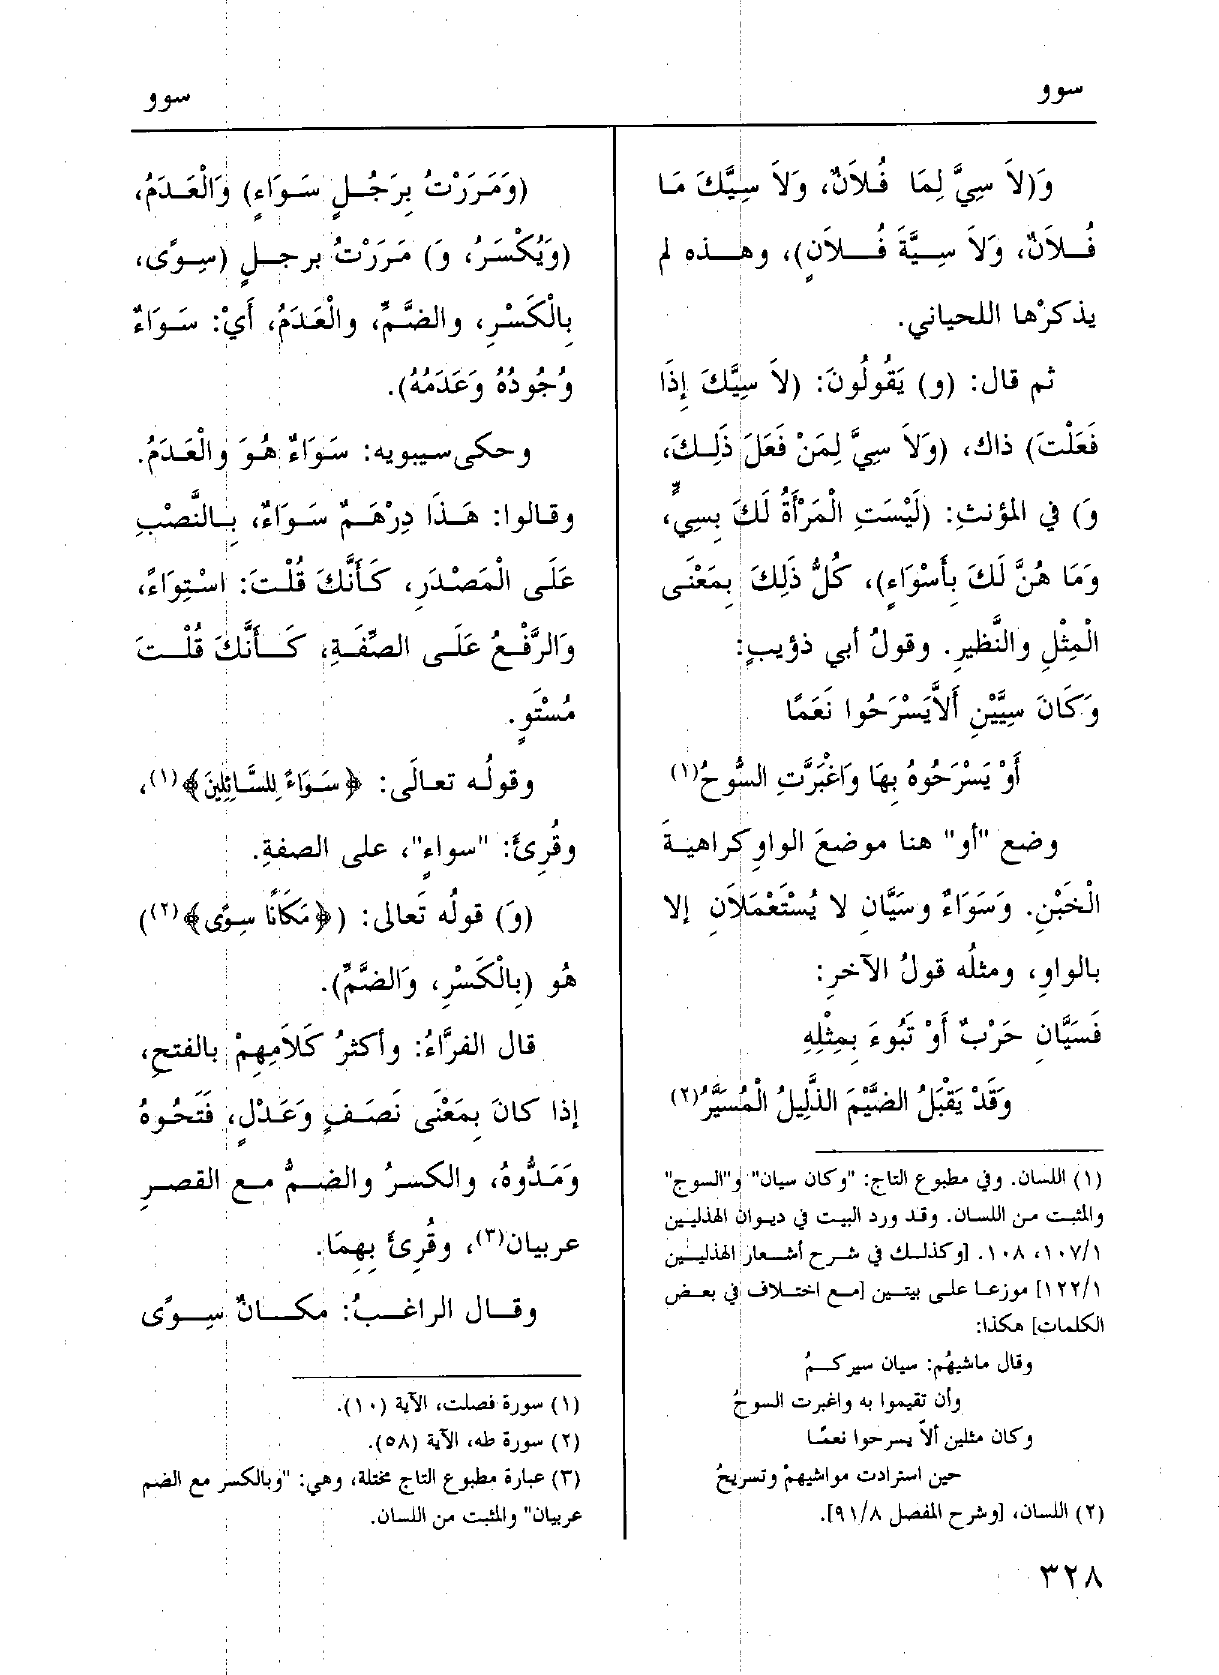 سوو
سوو
وَ(لاَ سِيَّ لِمَا فُلاَنٌ، وَلاَ سِيَّكَ مَا
فُلاَنٌ، وَلاَ سِيَّةَ فُلاَنٍ)، وهذه لم
يذكرْها اللحياني.
ثم قال: (و) يَقُولُونَ: (لاَ سِيَّكَ إِذَا
فَعَلْتَ) ذاك، (وَلاَ سِيَّ لِمَنْ فَعَلَ ذَلِكَ،
وَ) في المؤنثِ: (لَيْسَتِ الْمَرْأَةُ لَكَ بِسِيٍّ،
وَمَا هُنَّ لَكَ بِأَسْوَاءٍ)، كُلُّ ذَلِكَ بِمَعْنَى
الْمِثْلِ والنَّظيرِ. وقولُ أبي ذؤيبٍ:
وَكَانَ سِيَّيْنِ أَلاَّيَسْرَحُوا نَعَمًا
أَوْ يَسْرَحُوهُ بِهَا وَاغْبَرَّتِ السُّوحُ(١)
وضع "أو" هنا موضعَ الواوِ كراهيةَ
الْخَبْنِ. وَسَوَاءٌ وسَيَّانِ لا يُسْتَعْمَلاَنِ إلا
بالواوِ، ومثلُه قولُ الآخرِ:
فَسَيَّانِ حَرْبٌ أَوْ تَبُوءَ بِمِثْلِهِ
وَقَدْ يَقْبَلُ الضَّيْمَ الذَّلِيلُ الْمُسَيَّرُ(٢)
(١) اللسان. وفي مطبوع التاج: "وكان سيان" و"السوج"
والمثبت من اللسان. وقد ورد البيت في ديوان الهذليين
١/١٠٧، ١٠٨. [وكذلك في شرح أشعار الهذليين
١/١٢٢] موزعا على بيتين [مع اختلاف في بعض
الكلمات] هكذا:
وقال ماشيهُم: سيان سيركمُ
وأن تقيموا به واغبرت السوحُ
وكان مثلين ألاّ يسرحوا نعمًا
حين استرادت مواشيهمْ وتسريحُ
(٢) اللسان، [وشرح المفصل ٨/٩١].
(وَمَرَرْتُ بِرَجُلٍ سَوَاءٍ) وَالْعَدَمُ،
(وَيُكْسَرُ، وَ) مَرَرْتُ برجلٍ (سِوًى،
بِالْكَسْرِ، والضَّمِّ، والْعَدَمُ، أَيْ: سَوَاءٌ
وُجُودُهُ وَعَدَمُهُ).
وحكى سيبويه: سَوَاءٌ هُوَ وَالْعَدَمُ.
وقالوا: هَذَا دِرْهَمٌ سَوَاءٌ، بِالنَّصْبِ
عَلَى الْمَصْدَرِ، كَأَنَّكَ قُلْتَ: اسْتِوَاءً،
وَالرَّفْعُ عَلَى الصِّفَةِ، كَأَنَّكَ قُلْتَ
مُسْتَوٍ.
وقولُه تعالَى: ﴿سَوَاءً لِلسَّائِلِينَ﴾(١)،
وقُرِئَ: "سواءٍ"، على الصفةِ.
(وَ) قولُه تَعالى: (﴿مَكَانًا سِوًى﴾(٢))
هُو (بِالْكَسْرِ، وَالضَّمِّ).
قال الفرَّاءُ: وأكثرُ كَلاَمِهِمْ بالفتحِ،
إذا كانَ بِمَعْنَى نَصَفٍ وَعَدْلٍ، فَتَحُوهُ
وَمَدُّوهُ، والكسرُ والضمُّ مع القصرِ
عربيان(٣)، وقُرِئَ بِهِمَا.
وقال الراغبُ: مكانٌ سِوًى
(١) سورة فصلت، الآية (١٠).
(٢) سورة طه، الآية (٥٨).
(٣) عبارة مطبوع التاج مختلة، وهي: "وبالكسر مع الضم
عربيان" والمثبت من اللسان.
٣٢٨